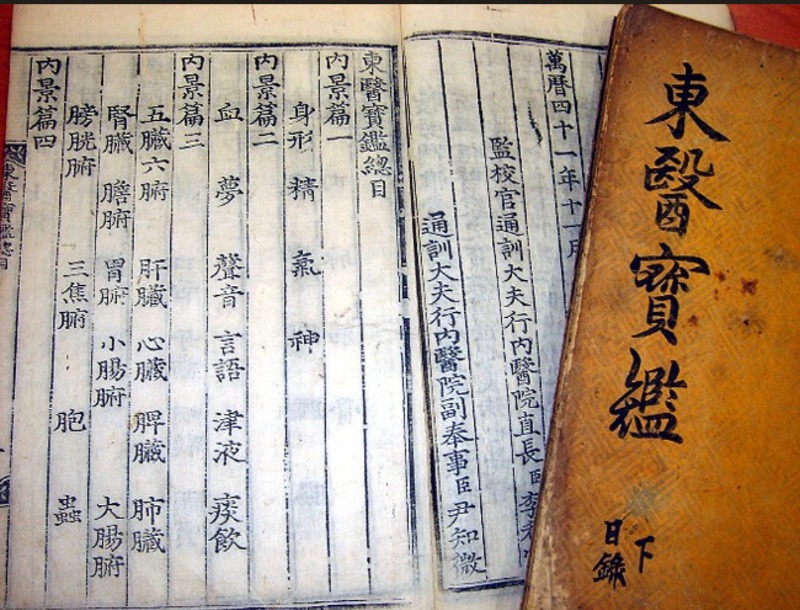 東醫寶鑑
下
目錄
萬曆四十一年十一月
監校官通訓大夫行內醫院直長臣李
通訓大夫行內醫院副奉事臣尹知微
東醫寶鑑總目
內景篇一
身形 精 氣 神
內景篇二
血 夢 聲音 言語 津液 痰飲
內景篇三
五臟六腑 肝臟 心臟 脾臟 肺臟
腎臟 膽腑 胃腑 小腸腑 大腸腑
膀胱腑 三焦腑 胞 蟲
內景篇四
東醫寶鑑總目